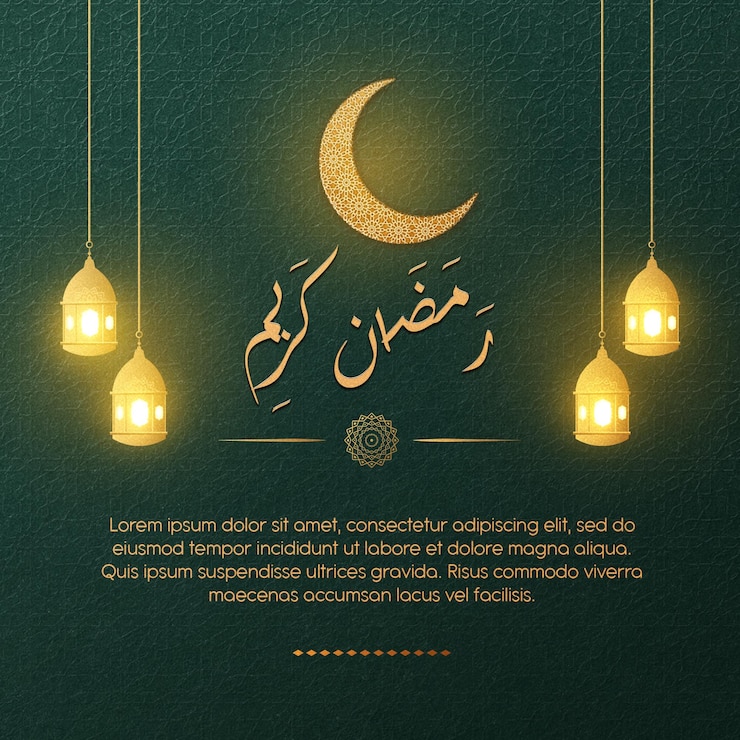 رَمَضَان كَرِيم
Lorem ipsum dolor sit amet, consectetur adipiscing elit, sed do
eiusmod tempor incididunt ut labore et dolore magna aliqua.
Quis ipsum suspendisse ultrices gravida. Risus commodo viverra
maecenas accumsan lacus vel facilisis.